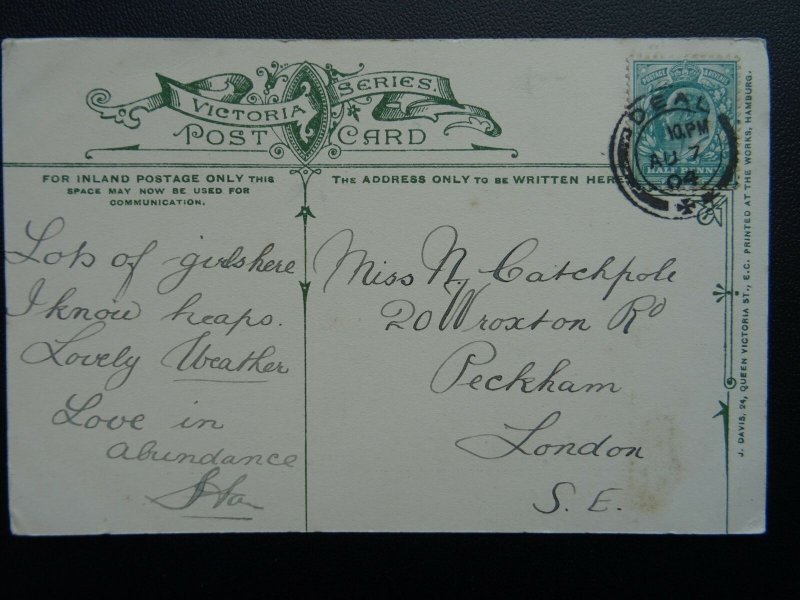 VICTORIA SERIES.
POST CARD
FOR INLAND POSTAGE ONLY THIS
SPACE MAY NOW BE USED FOR
COMMUNICATION.
THE ADDRESS ONLY TO BE WRITTEN HERE
POSTAGE
HALF PENNY
DEAL
10.PM
AU 7
04
Lots of girls here
I know heaps.
Lovely Weather
Love in
abundance
Miss N. Catchpole
20 Wroxton Rd
Peckham
London
S. E.
J. DAVIS, 24, QUEEN VICTORIA ST., E.C. PRINTED AT THE WORKS, HAMBURG.